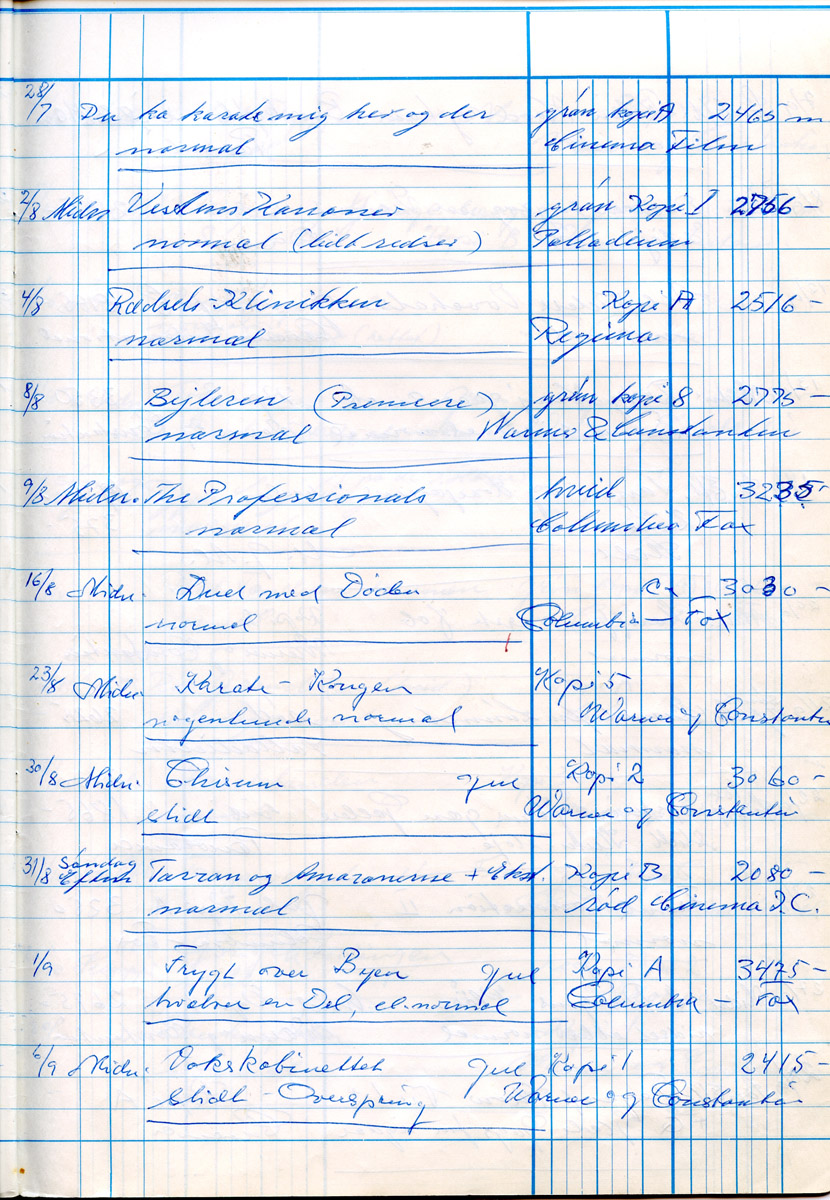 28/7 Du ka karate mig her og der grøn kopi A 2465 m
normal Cinema Film
2/8 Midn Vestens Kanoner grøn Kopi I 2756 -
normal (lidt redser) Palladium
4/8 Rædsels-Klinikken Kopi A 2516 -
normal Regina
8/8 Bejleren (Premiere) grøn kopi 8 2775 -
normal Warner & Constantin
9/8 Midn. The Professionals hvid 3235 -
normal Columbia Fox
16/8 Midn. Duel med Døden 3030 -
normal Columbia - Fox
23/8 Midn. Karate-Kongen Kopi 5
nogenlunde normal Warner og Constantin
30/8 Midn. Chisum gul Kopi 2 3060 -
slidt Warner og Constantin
31/8 Søndag Efterm Tarzan og Amazonerne + Ekst. Kopi B 2080 -
normal rød Cinema I.C.
1/9 Frygt over Byen gul Kopi A 3475 -
en Del, el. normal Columbia - Fox
6/9 Midn. Vokskabinettet gul Kopi 1 2415 -
slidt - Overspring Warner og Constantin